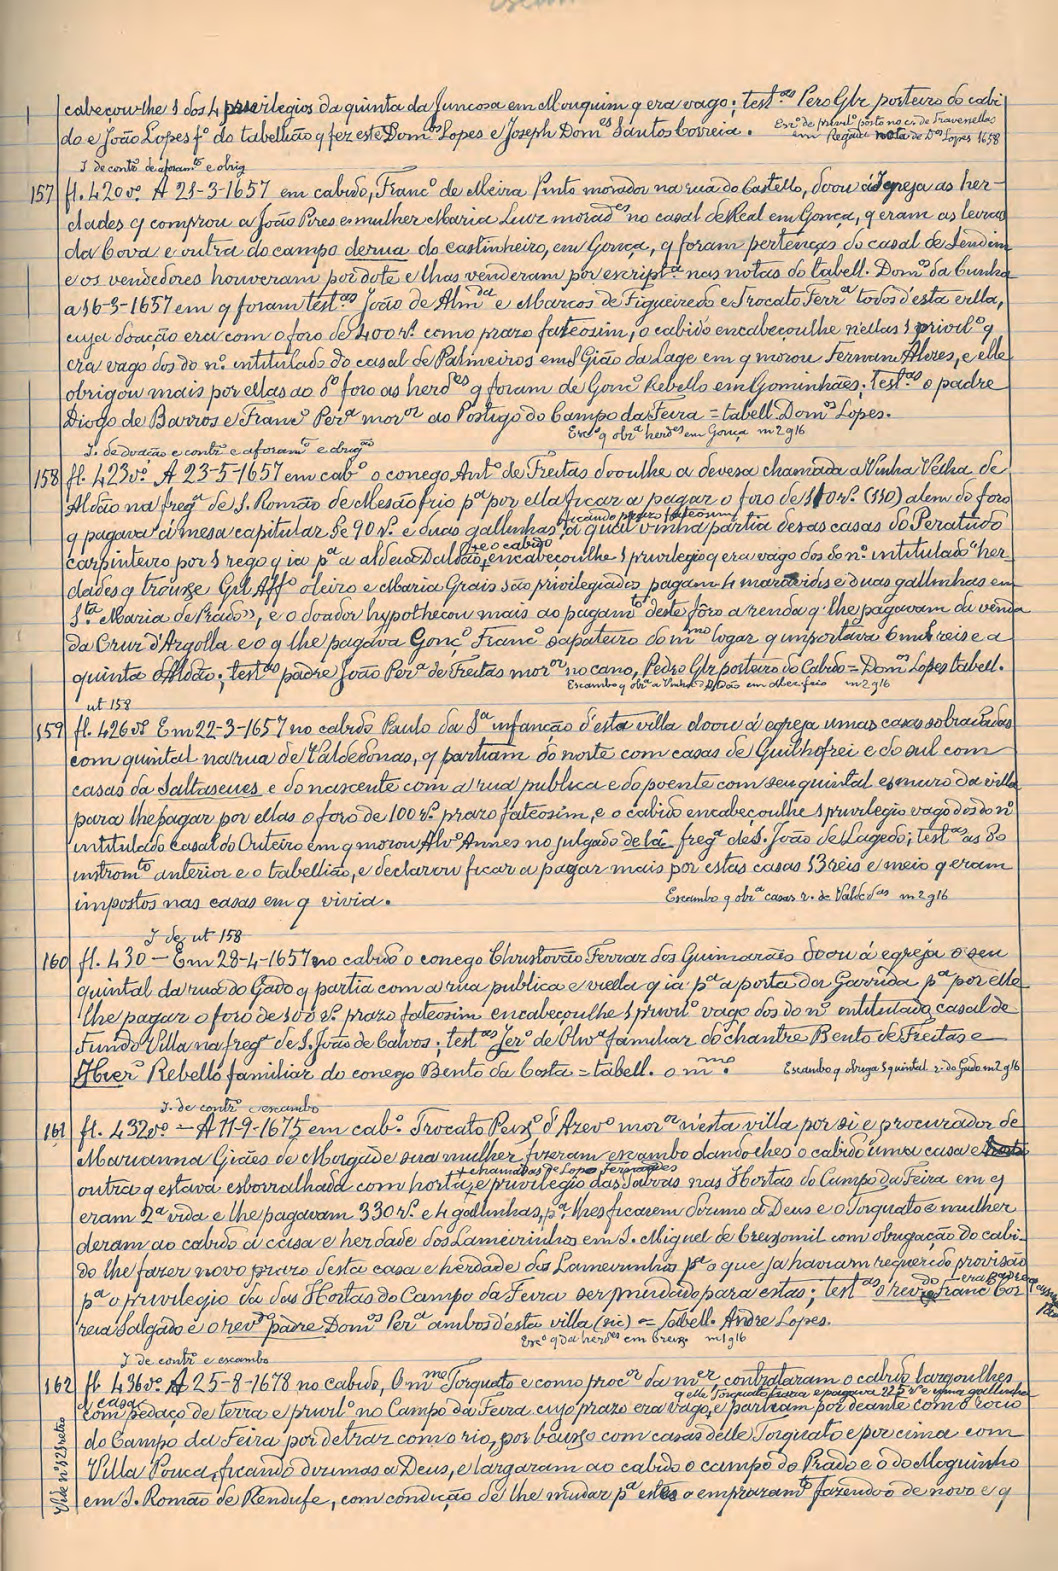 cabeçou-lhe 1 dos 4 privilegios da quinta da Juncosa em Mouquim q era vago; test.as Pero Glz porteiro do cabi
do e João Lopes f.o do tabellião q fez este Dom.os Lopes e Joseph Dom.es Santos Correia.
Esc.o de privil.o posto no c. de Travenellas
em Regadi nota de D.os Lopes 1658
I. de contr.o de aforam.to e obrig
157 fl. 420 v.o A 21-3-1657 em cabido, Franc.o de Meira Pinto morador na rua do Castello, doou á Igreja as her-
dades q comprou a João Pires e mulher Maria Luiz morad.es no casal de Real em Gonça, q eram as leiras
da Cova e outra do campo derua do castinheiro, em Gonça, q foram pertenças do casal de Sendim
e os vendedores houveram por dote e lhas venderam por escript.a nas notas do tabell. Dom.os da Cunha
a 16-3-1657 em q foram test.as João de Alm.da e Marcos de Figueiredo e Trocato Ferr.a todos d'esta villa,
cuja doação era com o foro de 400 r.s como prazo fateosim, o cabido encabeçoulhe n'ellas 1 privil.o q
era vago dos do n.o intitulado do casal de Palmeiros em S Gião da Lage em q morou Fernam Alvres, e elle
obrigou mais por ellas ao d.o foro as herd.es q foram de Gonc.o Rebello em Gominhães; test.as o padre
Diogo de Barros e Franc.o Per.a mor.or ao Postigo do Campo da Feira = tabell. Dom.os Lopes.
Esc.o q obr.a herd.es em Gonça m 2 g 16
I. de doação e contr.o e aforam.to e obrig.am
158 fl. 423 v.o A 23-5-1657 em cab.o o conego Ant.o de Freitas dooulhe a devesa chamada a Vinha Velha de
Aldão na freg.a de S. Romão de Mesão frio p.a por ella ficar a pagar o foro de 110 r.s (110) alem do foro
q pagava á mesa capitular de 90 r.s e duas gallinhas, a qual vinha partia desas casas do Peratudo
ficando prazo fateosim
carpinteiro por 1 rego q ia p.a a aldeia Daldão, encabeçoulhe 1 privilegio q era vago dos do n.o intitulado "her-
e o cabido
dades q trouxe Gil Aff.o oleiro e Maria Grais são privilegiados pagam 4 maravidis e duas gallinhas em
S.ta Maria de Prado", e o doador hypothecou mais ao pagam.to deste foro a renda q lhe pagavam da venda
da Cruz d'Argolla e o q lhe pagava Gonç.o Franc.o sapateiro do m.mo logar q importava 6 mil reis e a
quinta d'Aldão; test.as padre João Per.a de Freitas mor.or no cano, Pedro Glz porteiro do Cabido = Dom.os Lopes tabell.
Escambo q obr.a a Vinha d'Aldão em Mes. frio m 2 g 16
ut 158
159 fl. 426 v.o Em 22-3-1657 no cabido Paulo da S.a infanção d'esta villa doou á egreja umas casas sobradadas
com quintal na rua de Valdedonas, q partiam do norte com casas de Guilhofrei e do sul com
casas da Saltaseues e do nascente com a rua publica e do poente com seu quintal e muro da villa
para lhe pagar por ellas o foro de 100 r.s prazo fateosim, e o cabido encabeçoulhe 1 privilegio vago dos do n.o
intitulado casal do Outeiro em q morou Alv.o Annes no julgado de lá freg.a de S. João de Lagedo; test.as as do
instrom.to anterior e o tabellião, e declarou ficar a pagar mais por estas casas 13 reis e meio q eram
impostos nas casas em q vivia.
Escambo q obr.a casas r. de Valde d.as m 2 g 16
I de ut 158
160 fl. 430 — Em 28-4-1657 no cabido o conego Christovão Ferraz dos Guimarães doou á egreja o seu
quintal da rua do Gado q partia com a rua publica e viella q ia p.a a porta da Garrida p.a por elle
lhe pagar o foro de 100 r.s prazo fateosim encabeçoulhe 1 privil.o vago dos do n.o intitulado casal de
Fundo Villa na freg.a de S. João de Calvos; test.as Jer.o de Oliv.a familiar do chantre Bento de Freitas e
Hier.o Rebello familiar do conego Bento da Costa = tabell. o m.mo
Escambo q obriga 1 quintal r. do Gado m 2 g 16
I. de contr.o e escambo
161 fl. 432 v.o — A 11-9-1675 em cab.o Trocato Peix.o d'Azev.o mor.or n'esta villa por si e procurador de
Marianna Giães de Morgade sua mulher fizeram escambo dandolhes o cabido uma casa e
outra q estava esborralhada com horta, e privilegio das Tavoas nas Hortas do Campo da Feira em q
+ chamadas de Lopo Fernandes
eram 2.a vida e lhe pagavam 330 r.s e 4 gallinhas, p.a lhes ficarem dizimo a Deus e o Torquato e mulher
deram ao cabido a casa e herdade dos Lameirinhos em S. Miguel de Creixomil com obrigação do cabi-
do lhe fazer novo prazo desta casa e herdade dos Lameirinhos p.a o que ja haviam requerido provisão
p.a o privilegio da das Hortas do Campo da Feira ser mudado para estas; test.as o rev.do Franc.o Cor
reia Salgado e o rev.do padre Dom.os Per.a ambos d'esta villa (sic) = tabell. Andre Lopes.
Esc.o q da herd.es em Creix. m 1 g 16
I de contr.o e escambo
162 fl. 436 v.o A 25-8-1678 no cabido, O m.mo Torquato e como proc.or da m.er, contrataram o cabido largoulhes
a casa q elle Torquato trazia e pagava 225 r.s e uma gallinha
com pedaço de terra e privil.o no Campo da Feira cujo prazo era vago, e partiam por deante com o rocio
do Campo da Feira por detraz com o rio, por baixo com casas delle Torquato e por cima com
Villa Pouca, ficando dizimas a Deus, e largaram ao cabido o campo do Prado e o do Moguinho
em S. Romão de Rendufe, com condição de lhe mudar p.a estes o emprazam.to fazendo-o de novo e q
Vide n.o 128 retro